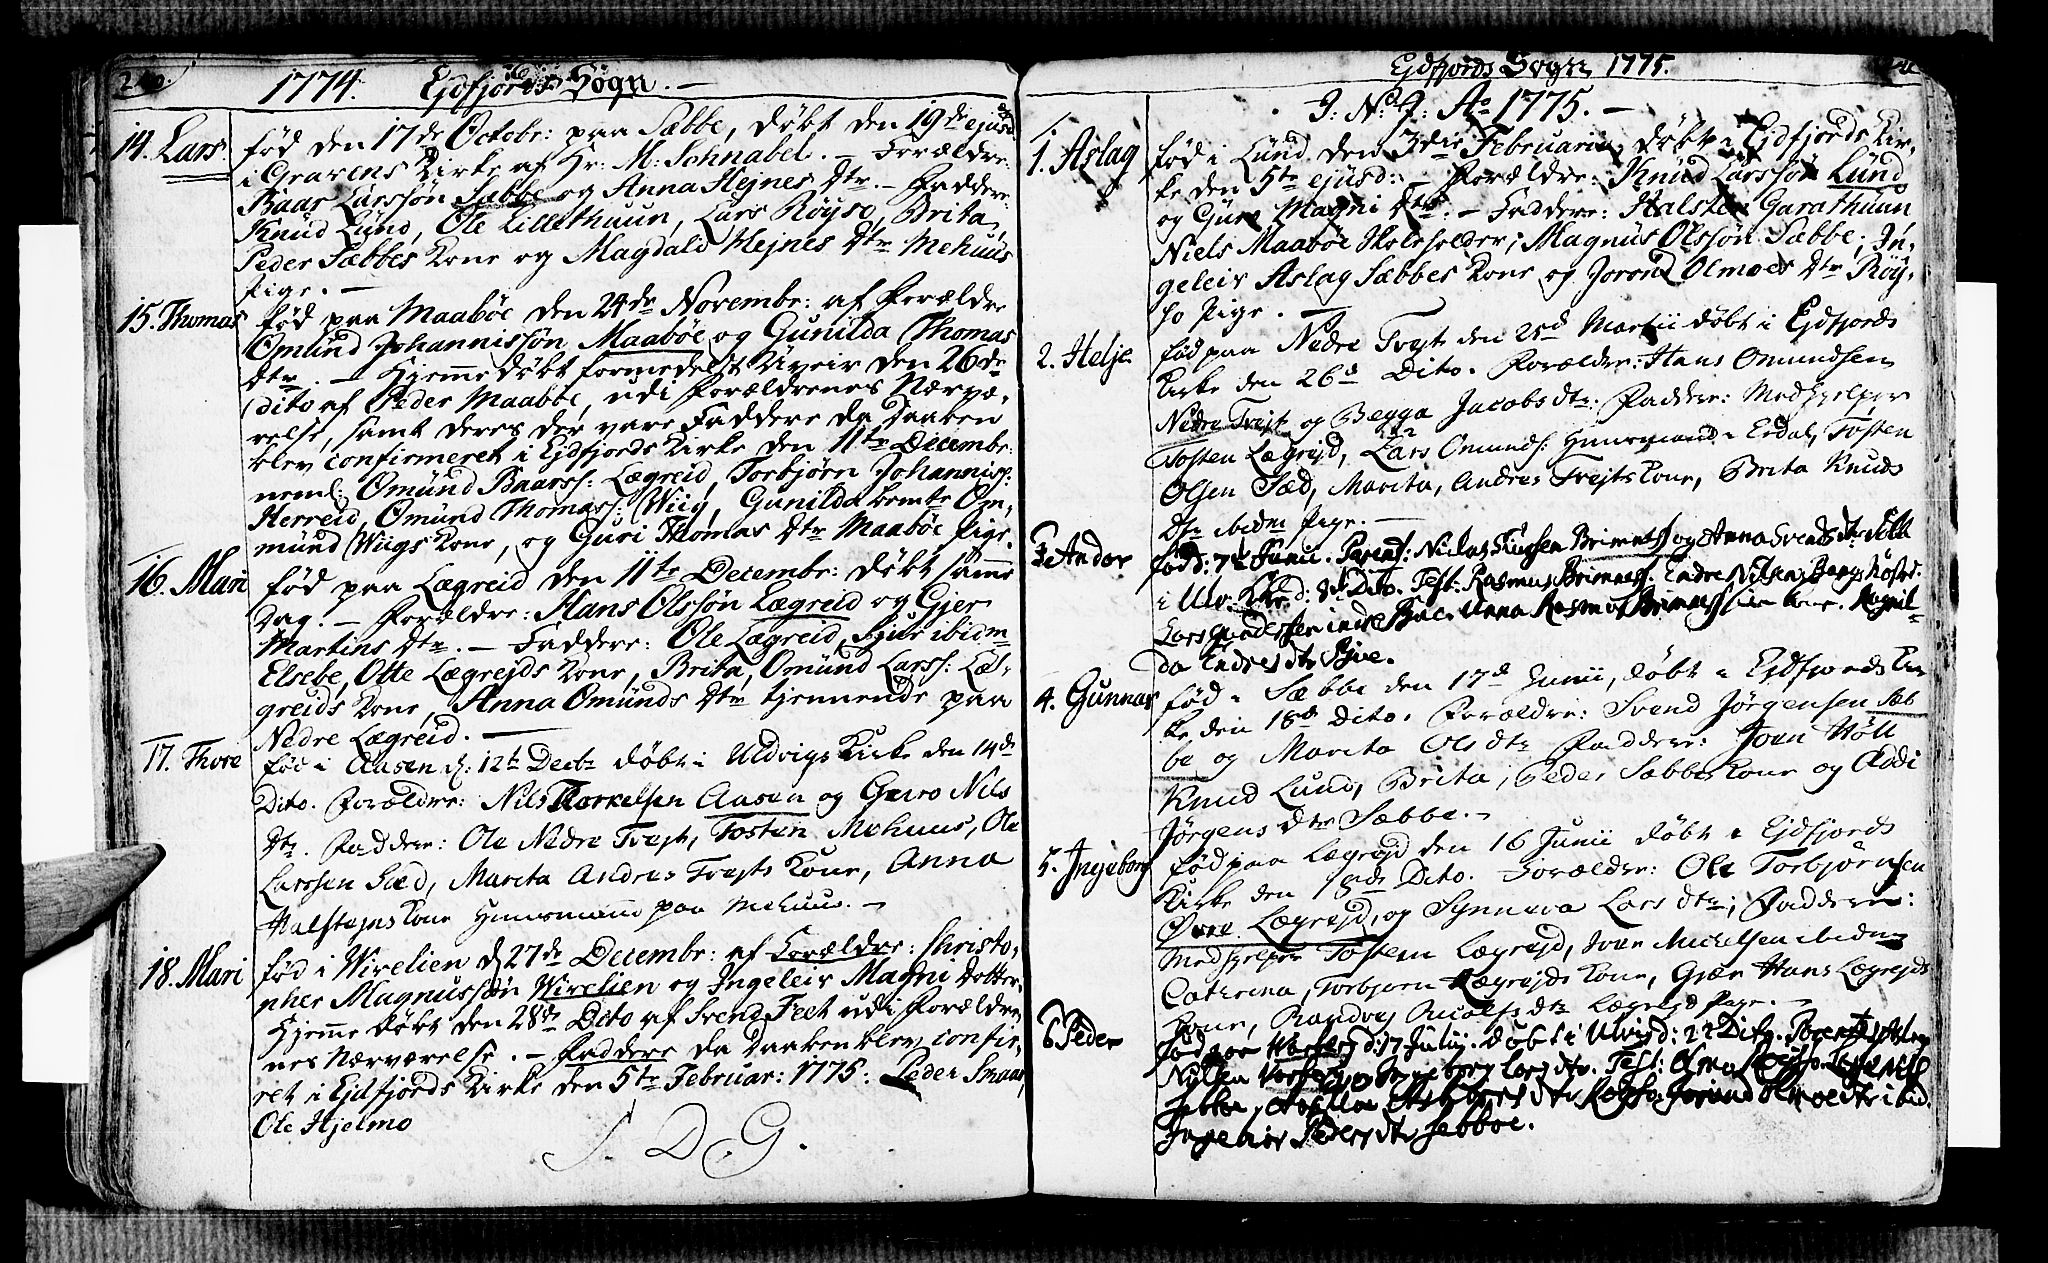 240.
1774. Ejdfjords Sogn. —
14. Lars. fød den 17de Octobr: paa Sæbbe, døbt den 19de ejusd
i Gravens Kirke af Hr: M: Schnabel. — Forældre:
Baar Larssøn Sæbbe og Anna Hejnes Dtr. — Faddere:
Knud Lund, Ole Lillethuun, Lars Røyso, Brita,
Peder Sæbbes Kone og Magdald Hejnes Dtr Mehuus
Pige. —
15. Thomas fød paa Maabøe den 24de Novembr: af Forældre
Omünd Johannissøn Maabøe og Gunilda Thomas
Dtr. — Hjemme døbt formedelst Uveir den 26de
dito af Peder Maabøe, udi Forældrenes Nærvæ-
relse, samt deres der vare Faddere da Daaben
blev confirmeret i Ejdfjords Kirke den 11te Decembr:
neml: Omünd Baarss: Lægreid, Torbjørn Johanniss:
Herreid, Omünd Thomass: Wiig, Gunilda bemte Om-
münd Wiigs Kone, og Guri Thomas Dtr Maabøe Pige.
16. Mari fød paa Lægreid den 11te Decembr: døbt samme
Dag. — Forældre: Hans Olssøn Lægreid og Gjer
Martins Dtr. — Faddere: Ole Lægreid, Sjur ibidm
Elsebe, Otte Lægrejds Kone, Brita, Omünd Larss: Læ-
greids Kone, Anna Omünds Dtr tjennende paa
Nedre Lægreid. —
17. Thore fød i Aasen d: 12te Decbr døbt i Uldvigs Kirke den 14de
Dito. Forældre: Nils Torkelsen Aasen og Guro Nils
Dtr. Faddere: Ole Nedre Trejt, Tosten Mehuus, Ole
Larssen Sæd, Marita Andres Trejts Kone, Anna
Halstejns Kone Huusmand paa Mehuus. —
18. Mari fød i Wirelien d 27de Decembr: af Forældre: Christo-
pher Magnussøn Wirelien og Ingeleiv Magni Dotter
Hjemme døbt den 28de Dito af Svend Feet udi Forældre-
nes Nærværelse. — Faddere da Daaben blev confir-
ret i Ejdfjords Kirke den 5te Februar: 1775: Peder Smaae,
Ole Hjelmo
S. D. G.
Ejdfjords Sogn 1775.
J: N: J: Ao 1775. —
1. Aslag fød i Lund den 3die Februarii, døbt i Ejdfjords Kir-
ke den 5te ejusd: — Forældre: Knud Larssøn Lund
og Guro Magni Dtr. — Faddere: Halsten Garathuun
Niels Maabøe Skoleholder, Magnus Olssøn Sæbbe, In-
geleiv Aslag Sæbbes Kone og Jorond Olmoes Dtr Røy-
so Pige. —
2. Helje fød paa Nedre Trejt den 25d Martii døbt i Ejdfjords
Kirke den 26d Dito. Forældre: Hans Omundsen
Nedre Trejt og Begga Jacobs dtr: Faddere: Medhjelper
Tosten Lægrejd, Lars Omunds: Huusmand i Erdal, Tosten
Olsen Sæd, Marita, Andres Trejts Kone, Brita Knuds
Dtr ibidm Pige. —
3. Andar fød: 7de Junii. Parent: Niclas Siursen Brimnes og Anna Svends dtr døbt
i Ulv: Kirke d: 8de Dito. Test: Rasmus Brimness. Endre Nilsen
Lars Anna Rasmus Brimness Kone. Magnil-
da Endres dtr
4. Gunnar fød i Sæbbe den 17d Junii, døbt i Ejdfjords Kir-
ke den 18d Dito. Forældre: Svend Jørgensen Sæb-
be og Marita Ols dtr Faddere: Joen Høll
Knud Lund, Brita, Peder Sæbbes Kone og Aadi
Jørgens dtr Sæbbe. —
5. Ingeborg fød paa Lægrejd den 16 Junii døbt i Ejdfjords
Kirke den 18de Dito. Forældre: Ole Torbjørnsen
Øvre Lægrejd, og Synneva Lars dtr; Faddere:
Medhjelper Tosten Lægrejd, Iver Michelsen ibidm
Catrina, Torbjørn Lægrejds Kone, Gjær Hans Lægrejds
Kone, Randvej Nicolj dtr Lægrejd Pige. —
6 Peder fød paa d: 17 Julii. døbt i Ulvig d: 22 Dito. Parent:
Nilsen og Ingeborg Lars dtr. Test:
Sebbe, Røgso. Jorund Olmoe dtr ibid.
Peders dtr Sebboe.